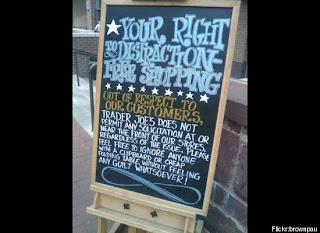 YOUR RIGHT
TO DISTRACTION-
FREE SHOPPING
OUT OF RESPECT TO
OUR CUSTOMERS,
TRADER JOES DOES NOT
PERMIT ANY SOLICITATION AT OR
NEAR THE FRONT OF OUR STORES,
REGARDLESS OF THE ISSUE. PLEASE
FEEL FREE TO IGNORE ANYONE
WITH A CLIPBOARD OR CHEAP
FOLDING TABLE WITHOUT FEELING
ANY GUILT WHATSOEVER!
Flickr:brownpau